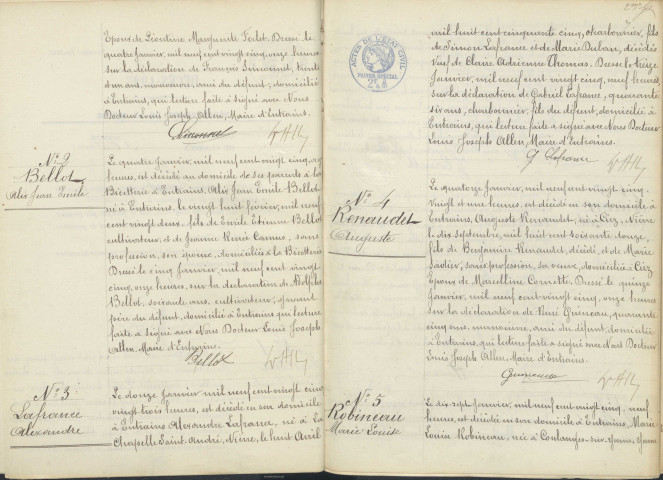 Epoux de Léontine Marguerite Forlet. Dressé le
quatre Janvier, mil neuf cent vingt cinq, onze heures
sur la déclaration de François Simonnet, trente
et un ans, manoeuvre, ami du défunt, domicilié
à Entrains, qui lecture faite a signé avec Nous
Docteur Louis Joseph Allen, Maire d'Entrains.
Simonnet
N° 2
Bellot
Alix Jean Emile
Le quatre Janvier, mil neuf cent vingt cinq, onze
heures, est décédé au domicile de ses parents à la
à Entrains, Alix Jean Emile Bellot
né à Entrains, le vingt huit février, mil neuf
cent vingt deux, fils de Emile Etienne Bellot
cultivateur, et de Jeanne Renée Camus, sans
profession, son épouse, domiciliés à la
Dressé le cinq Janvier, mil neuf cent vingt
cinq, onze heures, sur la déclaration de Adolphe
Bellot, soixante ans, cultivateur, grand
père du défunt, domicilié à Entrains qui lecture
faite a signé avec Nous Docteur Louis Joseph
Allen, Maire d'Entrains.
Bellot
N° 3
Lafrance
Alexandre
Le douze Janvier mil neuf cent vingt cinq
vingt trois heures, est décédé en son domicile
à Entrains Alexandre Lafrance, né à La
Chapelle Saint André, Nièvre, le huit Avril
ACTES DE L'ETAT CIVIL
PAPIER SPECIAL
mil huit cent cinquante cinq, charbonnier, fils
de Simon Lafrance et de Marie Duban, décédés
Veuf de Claire Adrienne Thomas. Dressé le treize
Janvier, mil neuf cent vingt cinq, neuf heures
sur la déclaration de Gabriel Lafrance, quarante
six ans, charbonnier, fils du défunt, domicilié à
Entrains, qui lecture faite a signé avec Nous Docteur
Louis Joseph Allen, Maire d'Entrains.
G Lafrance
N° 4
Renaudet
Auguste
Le quatorze Janvier, mil neuf cent vingt cinq
Vingt et une heures, est décédé en son domicile à
Entrains, Auguste Renaudet, né à Ciez, Nièvre
le dix septembre, mil huit cent soixante douze,
fils de Benjamin Renaudet, décédé, et de Marie
sans profession, sa veuve, domiciliée à Ciez
Epoux de Marceline Cornette. Dressé le quinze
Janvier, mil neuf cent vingt cinq, onze heures
sur la déclaration de René Guéneau, quarante
cinq ans, manoeuvre, ami du défunt, domicilié
à Entrains, qui lecture faite a signé avec Nous Docteur
Louis Joseph Allen, Maire d'Entrains.
Gueneau
N° 5
Robineau
Marie Louise
Le dix sept Janvier, mil neuf cent vingt cinq, neuf
heures, est décédée en son domicile à Entrains, Marie
Louise Robineau, née à Coulanges sur Yonne, Yonne